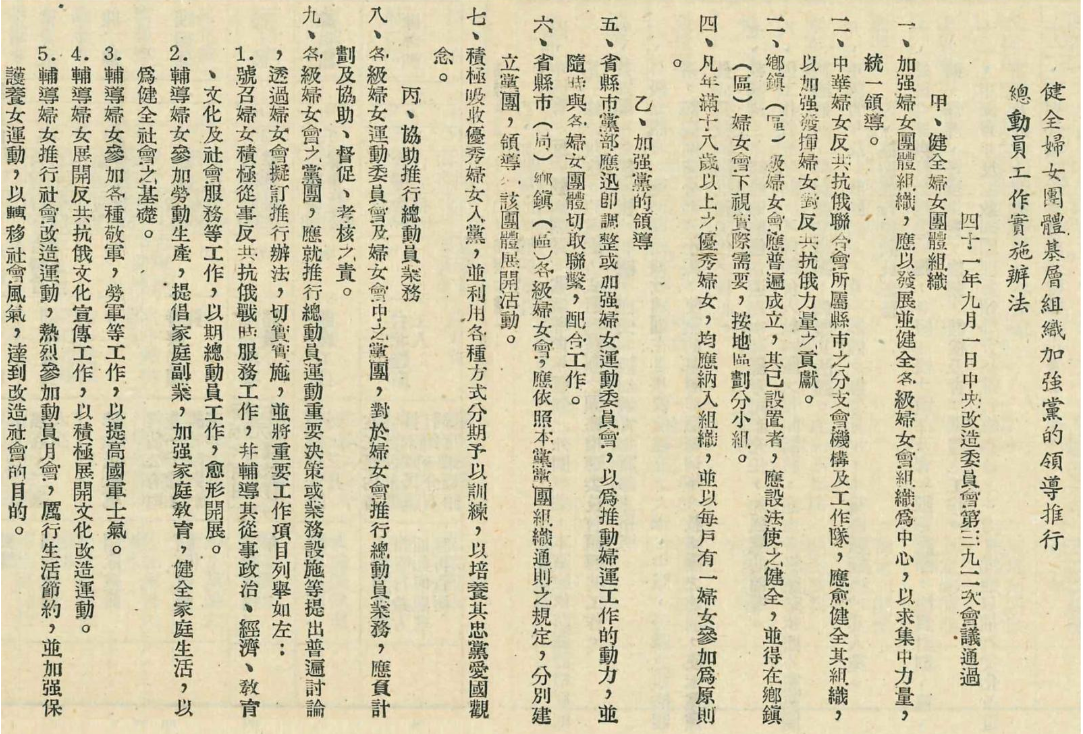 健全婦女團體基層組織加強黨的領導推行
總動員工作實施辦法
四十一年九月一日中央改造委員會第三九二次會議通過
甲、健全婦女團體組織
一、加强婦女團體組織，應以發展並健全各級婦女會組織爲中心，以求集中力量，
統一領導。
二、中華婦女反共抗俄聯合會所屬縣市之分支會機構及工作隊，應愈健全其組織，
以加强發揮婦女對反共抗俄力量之貢獻。
三、鄉鎭（區）級婦女會應普遍成立，其已設置者，應設法使之健全，並得在鄉鎭
（區）婦女會下視實際需要，按地區劃分小組。
四、凡年滿十八歲以上之優秀婦女，均應納入組織，並以每戶有一婦女參加爲原則
。
乙、加强黨的領導
五、省縣市黨部應迅卽調整或加强婦女運動委員會，以爲推動婦運工作的動力，並
隨時與各婦女團體切取聯繫，配合工作。
六、省縣市（局）鄉鎭（區）各級婦女會，應依照本黨黨團組織通則之規定，分別建
立黨團，領導各該團體展開活動。
七、積極吸收優秀婦女入黨，並利用各種方式分期予以訓練，以培養其忠黨愛國觀
念。
丙、協助推行總動員業務
八、各級婦女運動委員會及婦女會中之黨團，對於婦女會推行總動員業務，應負計
劃及協助、督促、考核之責。
九、各級婦女會之黨團，應就推行總動員運動重要決策或業務設施等提出普遍討論
，透過婦女會擬訂推行辦法，切實實施，並將重要工作項目列舉如左：
1. 號召婦女積極從事反共抗俄戰時服務工作，并輔導其從事政治、經濟、敎育
、文化及社會服務等工作，以期總動員工作，愈形開展。
2. 輔導婦女參加勞動生產，提倡家庭副業，加强家庭敎育，健全家庭生活，以
爲健全社會之基礎。
3. 輔導婦女參加各種敬軍，勞軍等工作，以提高國軍士氣。
4. 輔導婦女展開反共抗俄文化宣傳工作，以積極展開文化改造運動。
5. 輔導婦女推行社會改造運動，熱烈參加動員月會，厲行生活節約，並加强保
護養女運動，以轉移社會風氣，達到改造社會的目的。